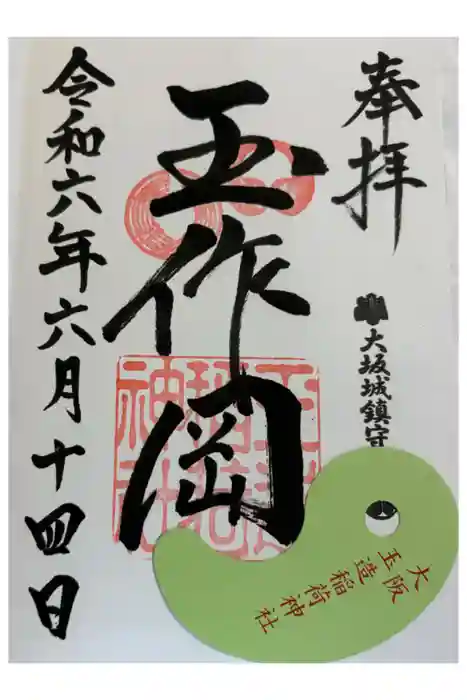 奉拝
大坂城鎮守
玉作岡
玉造稲荷神社
令和六年六月十四日
大阪
玉造稲荷神社